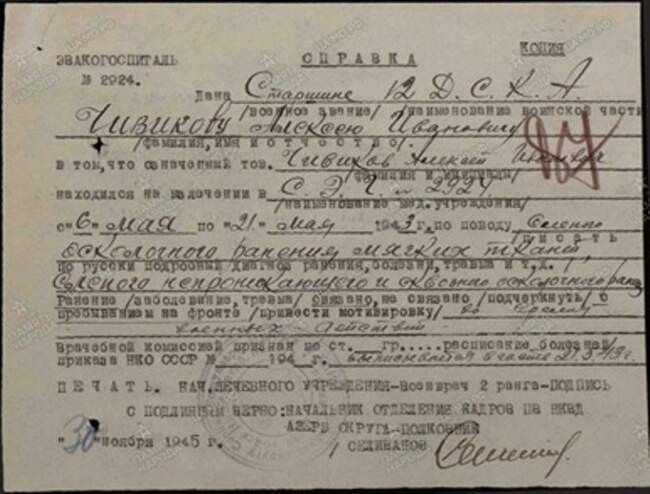 КОПИЯ
ЭВАКОГОСПИТАЛЬ СПРАВКА
№ 2924.
Дана Старшине 12 Д.С.К.А.
/военное звание/ /наименование воинской части/
Чивикову Алексею Ивановичу
/фамилия, имя и отчество/.
в том, что означенный тов. Чивиков Алексей
/фамилия и инициалы/
находился на излечении в С.Э.Г. № 2924
/наименование мед.учреждения/
с "6" мая по "21" мая 1943 г. по поводу
/писать
осколочного ранения мягких тканей
по русски подробный диагноз ранения, болезни, травма и т.д./
слепого непроникающего и осколочного
Ранение /заболевание, травма/ связано, не связано /подчеркнуть/ с
пребыванием на фронте /привести мотивировку/ во время
военных действий
Врачебной комиссией признан по ст. гр.....расписание болезней
приказа НКО СССР № 194 г. 21.5.43г.
ПЕЧАТЬ. НАЧ.ЛЕЧЕБНОГО УЧРЕЖДЕНИЯ-Военврач 2 ранга-ПОДПИСЬ
С ПОДЛИННЫМ ВЕРНО: НАЧАЛЬНИК ОТДЕЛЕНИЯ КАДРОВ ПВ НКВД
АЗЕРБ ОКРУГА-ПОЛКОВНИК
"30" ноября 1945 г. /СЕЛИВАНОВ